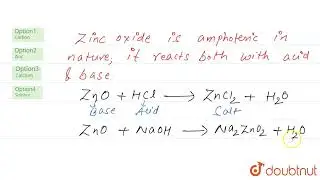 Option1
Carbon
Option2
Zinc
Option3
Calcium
Option4
Zinc oxide is amphoteric in
nature, it reacts both with acid
& base
ZnO + HCl → ZnCl2 + H2O
Base Acid Salt
ZnO + NaOH → Na2ZnO2 + H2O
doubtnut